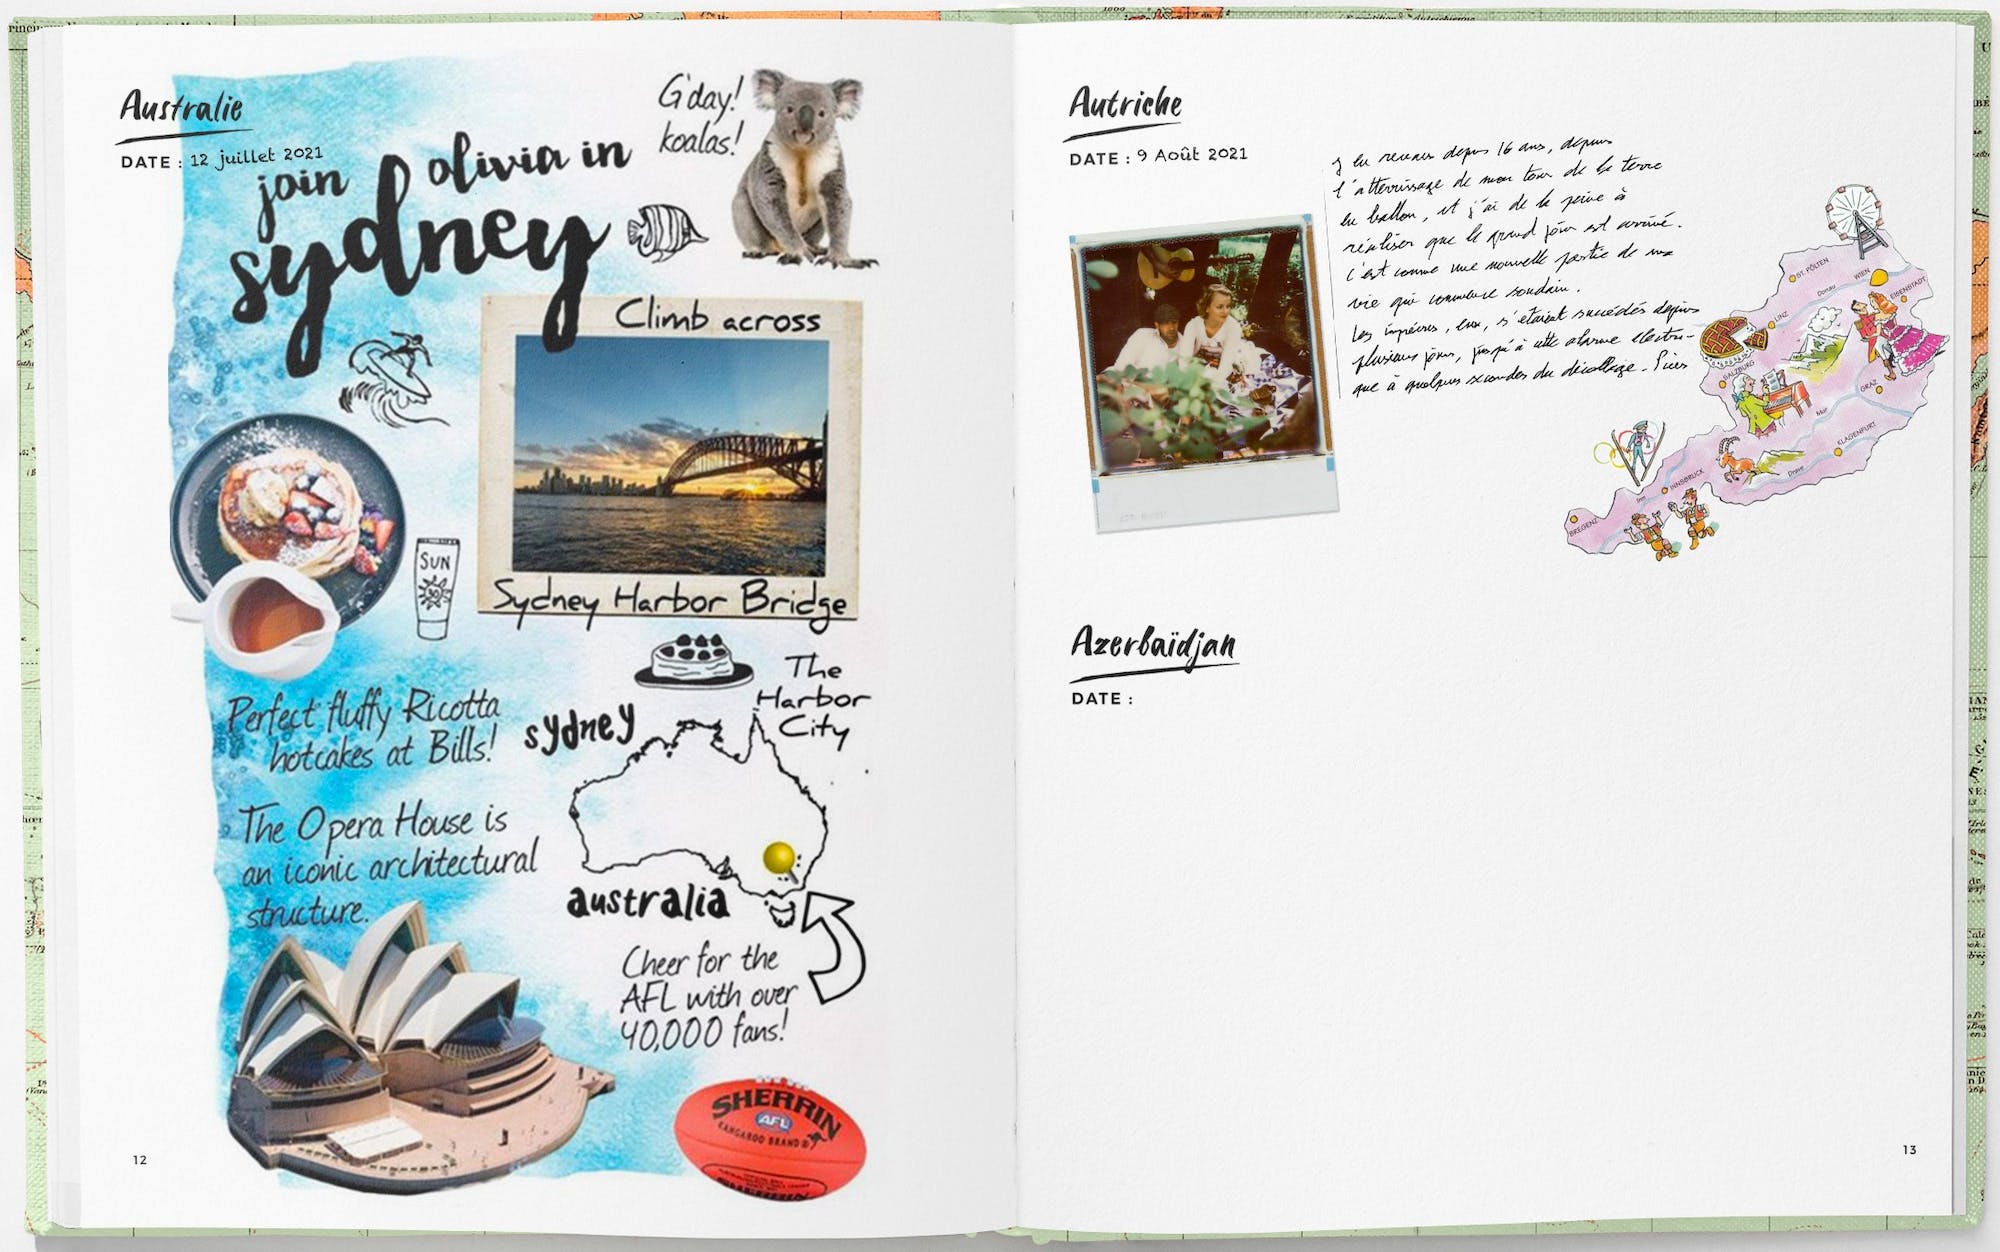 Australie
DATE : 12 juillet 2021
join olivia in
sydney
G'day!
koalas!
Climb across
Sydney Harbor Bridge
SUN
30
Perfect fluffy Ricotta
hotcakes at Bills!
The
Harbor
City
sydney
The Opera House is
an iconic architectural
structure.
australia
Cheer for the
AFL with over
40,000 fans!
SHERRIN
AFL
KANGAROO BRAND
SHERRIN
12
Autriche
DATE : 9 Août 2021
depuis 16 ans, depuis
l'atterrissage de mon tour de la terre
en ballon, et j'ai de la peine à
réaliser que le grand jour est arrivé.
c'est comme une nouvelle partie de ma
vie qui commence soudain.
Les imprévus, eux, s'étaient succédés depuis
plusieurs jours, jusqu'à cette alarme électri-
que à quelques secondes du décollage.
ST. PÖLTEN
WIEN
Donau
EISENSTADT
LINZ
SALZBURG
GRAZ
Mur
KLAGENFURT
Drava
INNSBRUCK
Inn
BREGENZ
Azerbaïdjan
DATE :
13